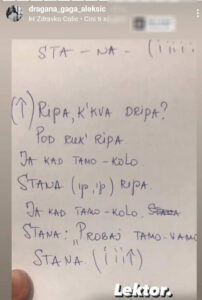 dragana_gaga_aleksic
Zdravko Colic • Cini ti s
STA - NA - (iiii
(↑) RIPA, K'KVA DRIPA?
POD RUK' RIPA.
JA KAD TAMO - KOLO
STANA (ip, ip) RIPA.
JA KAD TAMO - KOLO. STANA
STANA: "PROBAJ TAMO-VAMO
STANA (iii↑)
Lektor.